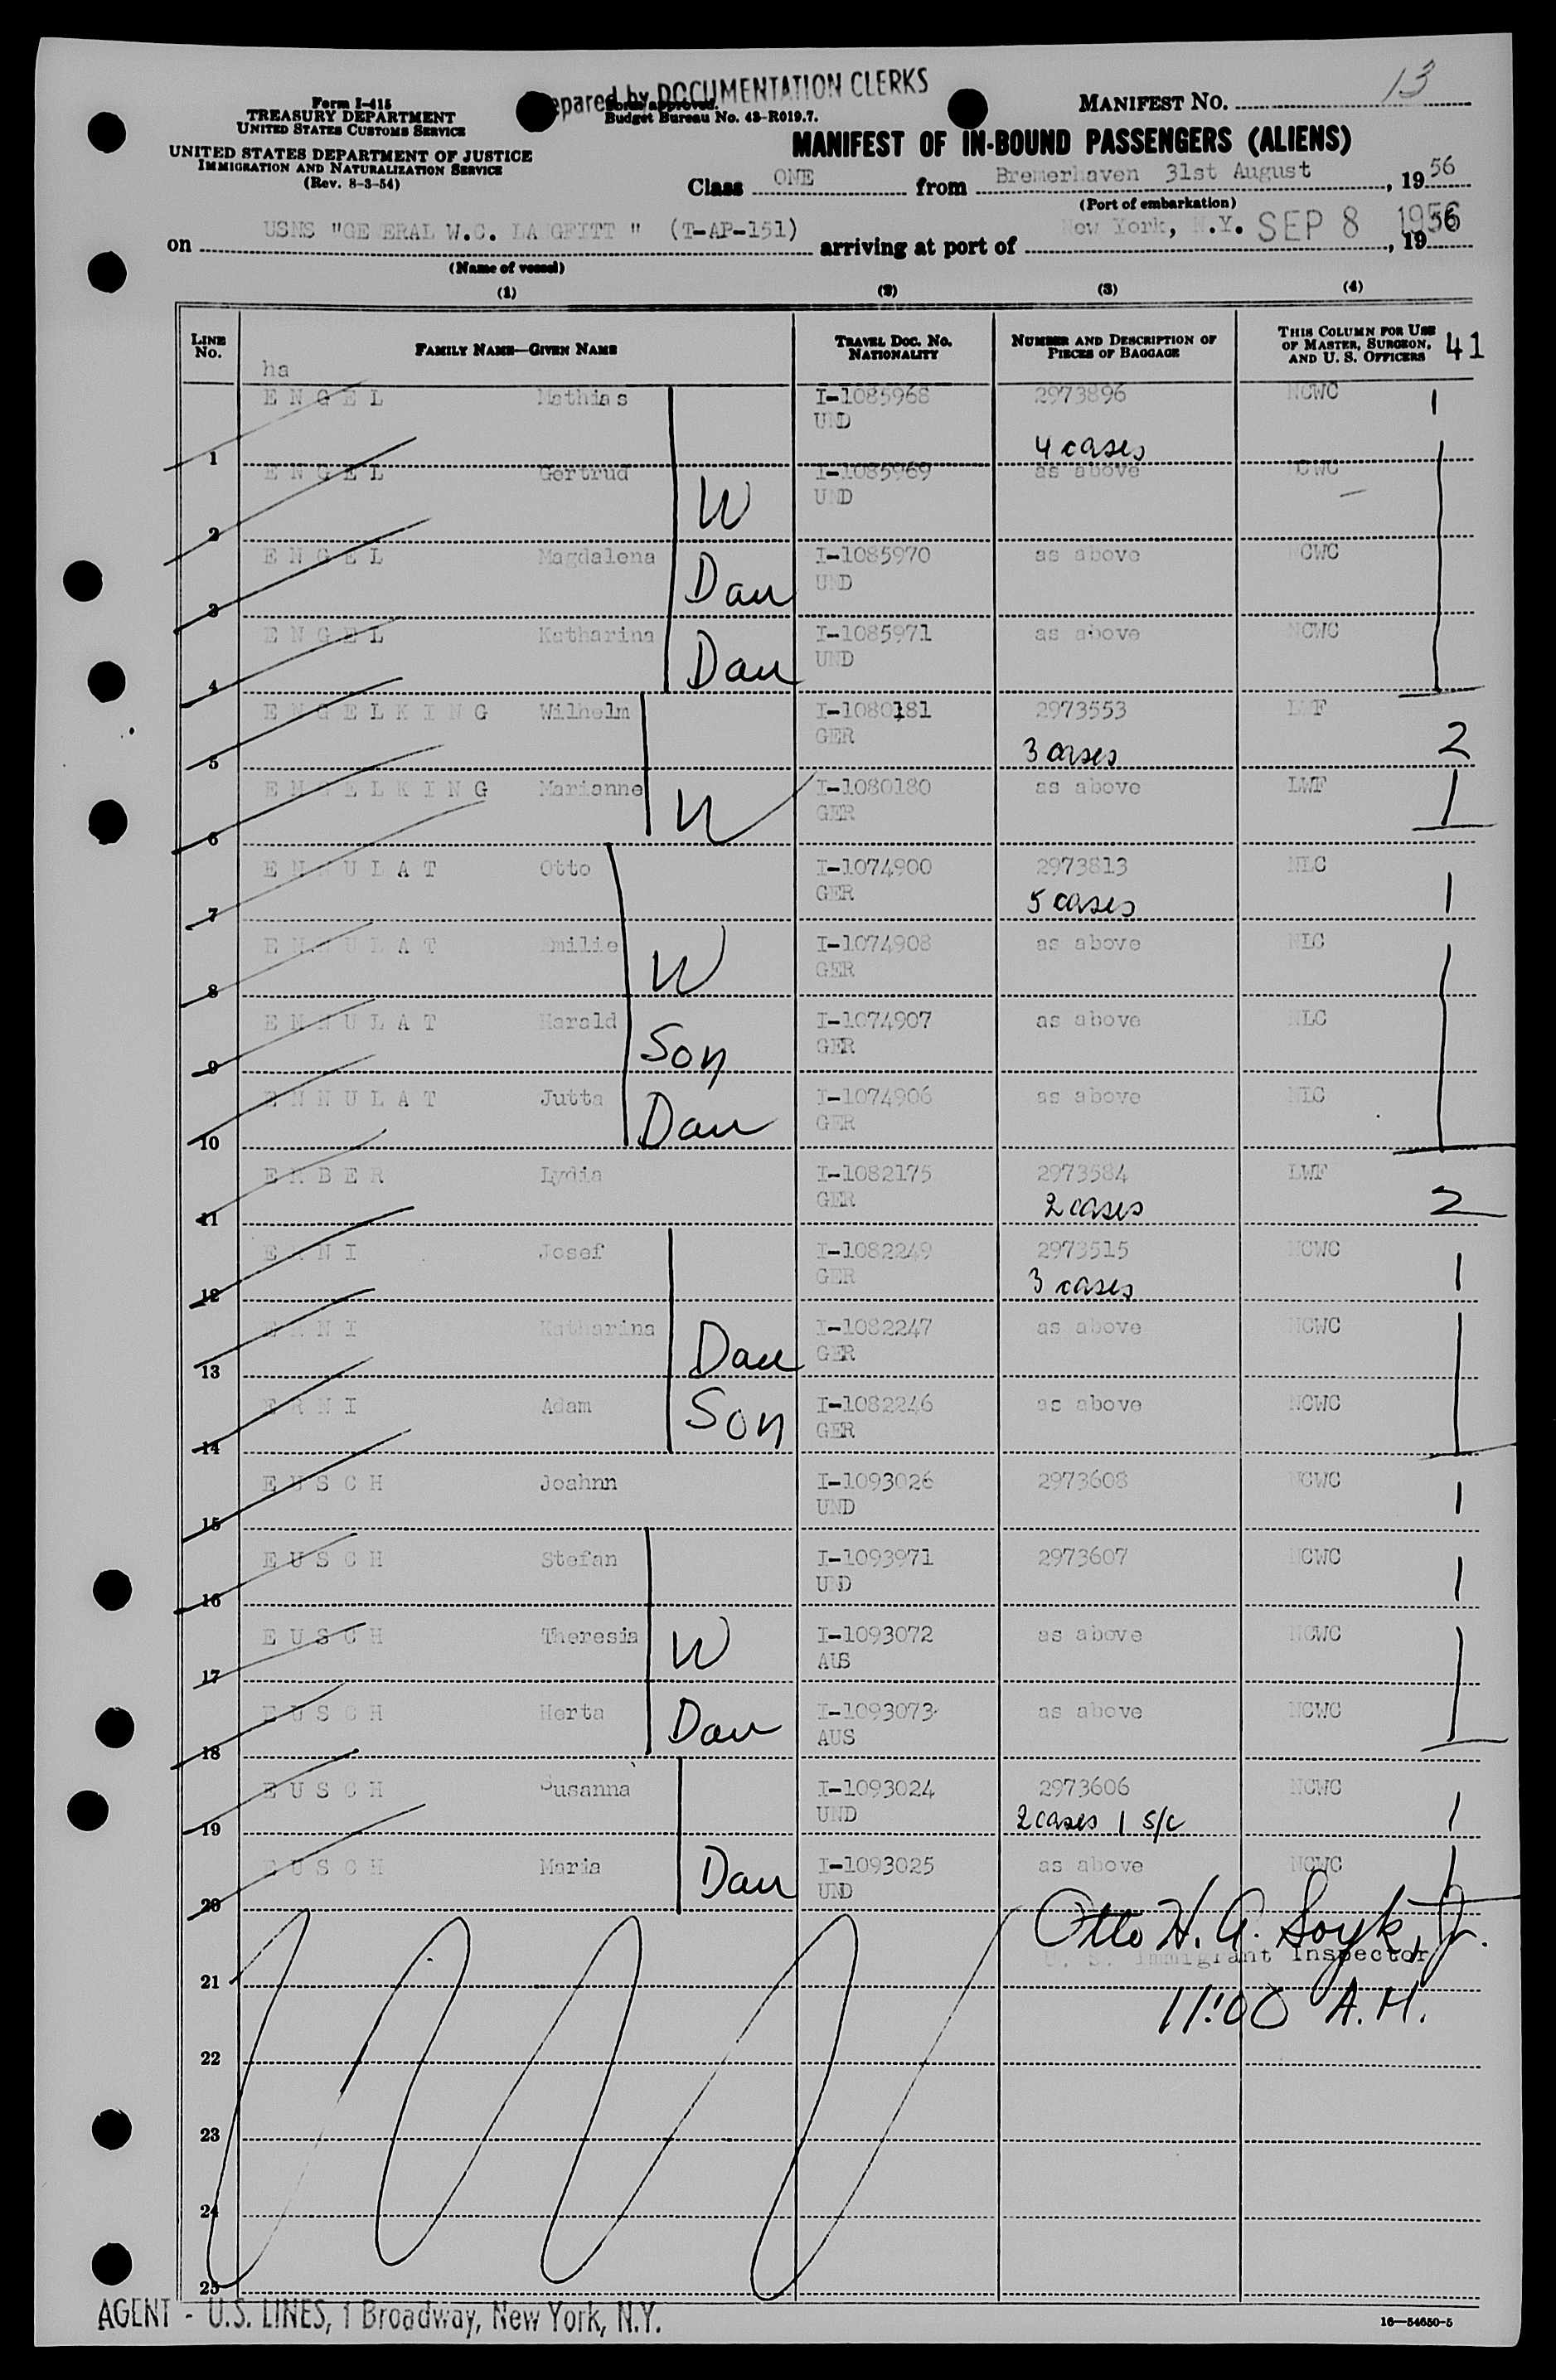 13
Prepared by DOCUMENTATION CLERKS
Form I-415
TREASURY DEPARTMENT
UNITED STATES CUSTOMS SERVICE
UNITED STATES DEPARTMENT OF JUSTICE
IMMIGRATION AND NATURALIZATION SERVICE
(Rev. 8-3-54)
Form approved.
Budget Bureau No. 43-R019.7.
MANIFEST NO.
MANIFEST OF IN-BOUND PASSENGERS (ALIENS)
Class ONE from Bremerhaven 31st August, 1956
(Port of embarkation)
on USNS "GENERAL W.C. LANGFITT" (T-AP-151) arriving at port of New York, N.Y. SEP 8 1956, 1956
(Name of vessel)
(1) (2) (3) (4)
LINE No. FAMILY NAME—GIVEN NAME TRAVEL DOC. NO. NATIONALITY NUMBER AND DESCRIPTION OF PIECES OF BAGGAGE THIS COLUMN FOR USE OF MASTER, SURGEON, AND U. S. OFFICERS 41
ha
1 ENGEL Mathias I-1085968 UND 2973896 4 cases NCWC 1
2 ENGEL Gertrud W I-1085969 UND as above NCWC
3 ENGEL Magdalena Dau I-1085970 UND as above NCWC
4 ENGEL Katharina Dau I-1085971 UND as above NCWC
5 ENGELKING Wilhelm I-1080181 GER 2973553 3 cases LWF 2
6 ENGELKING Marianne W I-1080180 GER as above LWF 1
7 ENNULAT Otto I-1074900 GER 2973813 5 cases NLC 1
8 ENNULAT Emilie W I-1074908 GER as above NLC
9 ENNULAT Harald Son I-1074907 GER as above NLC
10 ENNULAT Jutta Dau I-1074906 GER as above NLC
11 ERBER Lydia I-1082175 GER 2973584 2 cases LWF 2
12 ERNI Josef I-1082249 GER 2973515 3 cases NCWC 1
13 ERNI Katharina Dau I-1082247 GER as above NCWC
14 ERNI Adam Son I-1082246 GER as above NCWC
15 EUSCH Joahnn I-1093026 UND 2973608 NCWC 1
16 EUSCH Stefan I-1093971 UND 2973607 NCWC 1
17 EUSCH Theresia W I-1093072 AUS as above NCWC
18 EUSCH Herta Dau I-1093073 AUS as above NCWC
19 EUSCH Susanna I-1093024 UND 2973606 2 cases 1 S/C NCWC 1
20 EUSCH Maria Dau I-1093025 UND as above NCWC
Otto H. G. Soyk, Jr.
U. S. Immigrant Inspector
21
11:00 A.M.
22
23
24
25
AGENT - U.S. LINES, 1 Broadway, New York, N.Y.
16—54650-5